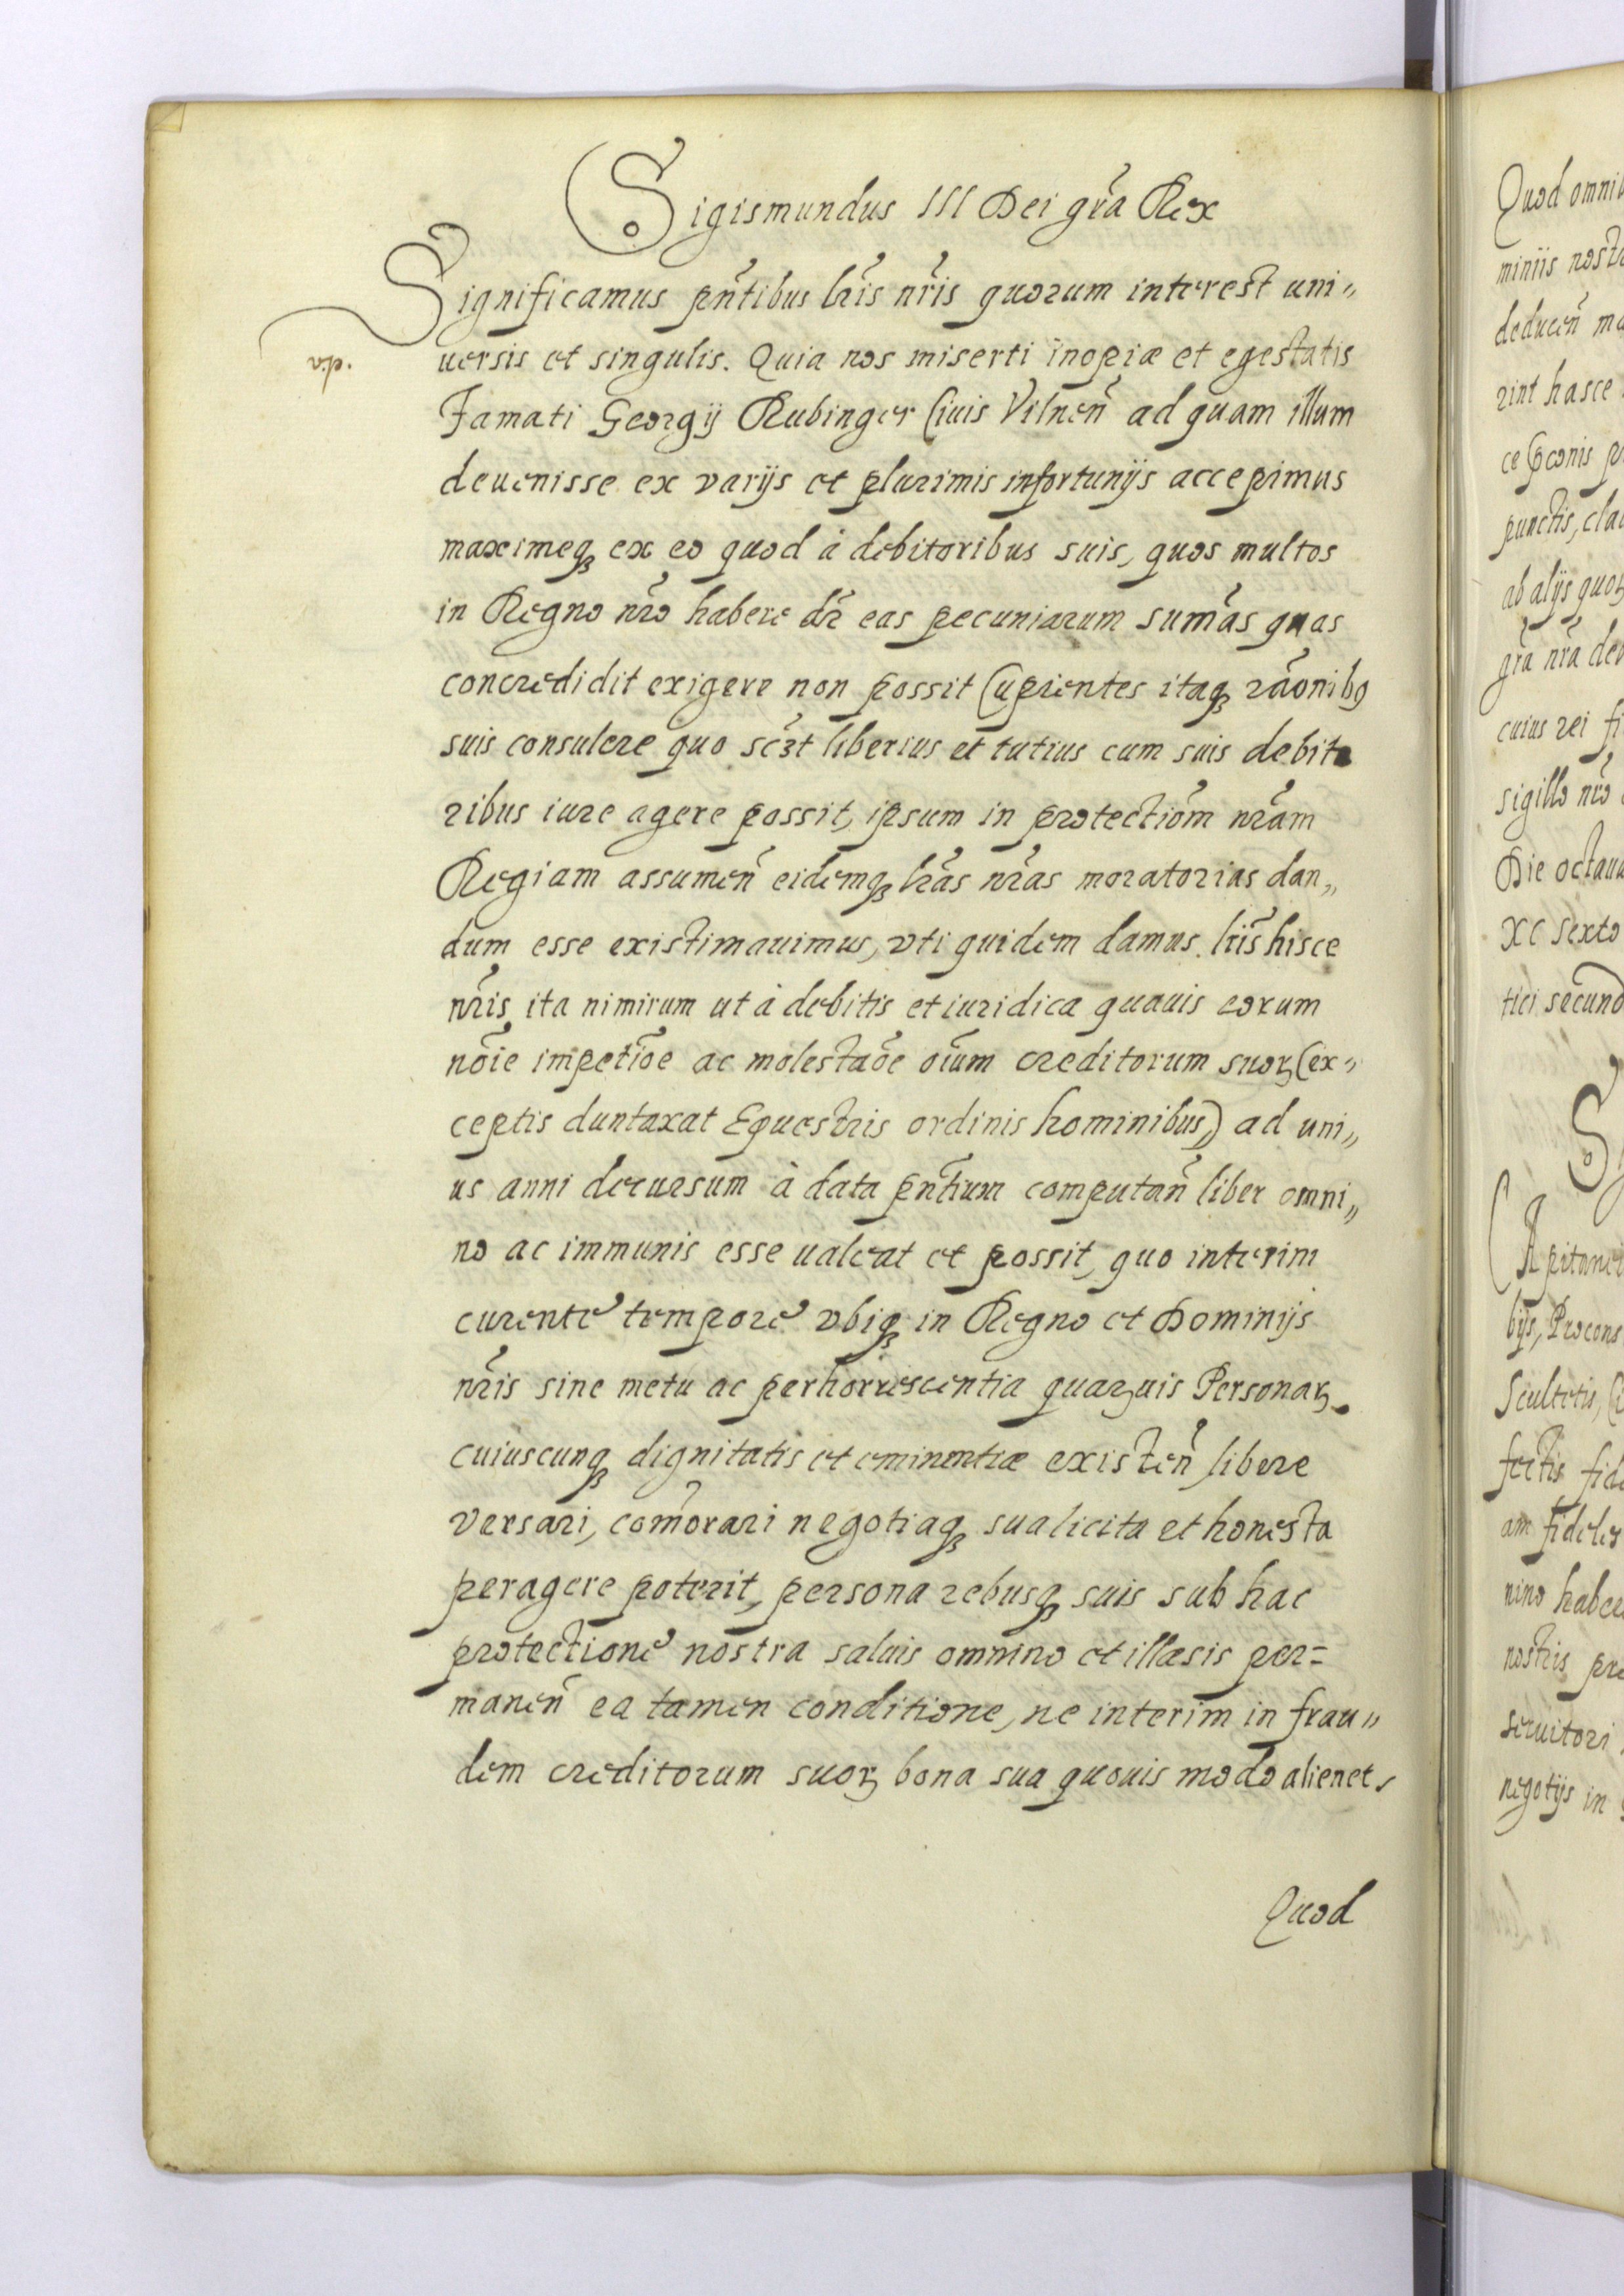 Sigismundus III Dei gr̃a Rex
Significamus pñtibus lr̃is nr̃is quorum interest uni„
uersis et singulis. Quia nos miserti inopiæ et egestatis
Famati Georgij Rubinger Ciuis Vilneñ ad quam illum
deuenisse ex varijs et plurimis infortunijs accepimus
maximeqꝫ ex eo quod à debitoribus suis, quos multos
in Regno nr̃o habere dr̃ eas pecuniarum sum̃as quas
concredidit exigere non possit Cupientes itaqꝫ rãonibꝰ
suis consulere quo scꝫt liberius et tutius cum suis debito
ribus iure agere possit, ipsum in protectiõm nr̃am
Regiam assumeñ eidemqꝫ lr̃as nr̃as moratorias dan„
dum esse existimauimus, vti quidem damus. lr̃is hisce
nr̃is ita nimirum ut à debitis et iuridica quauis eorum
nõie impetiõe ac molestaõe oĩum creditorum suoꝝ (ex„
ceptis duntaxat Equestris ordinis hominibus,) ad uni„
us anni decursum à data pñtium computañ liber omni„
no ac immunis esse ualeat et possit, quo interim
curente tempore vbiqꝫ in Regno et Dominijs
nr̃is sine metu ac perhorrescentia quaꝝuis Personaꝝ
cuiuscunqꝫ dignitatis et eminentiæ existeñ libere
versari, com̃orari negotiaqꝫ sua licita et honesta
peragere poterit, persona rebusqꝫ suis sub hac
protectione nostra saluis omnino et illæsis per=
maneñ ea tamen conditione, ne interim in frau„
dem creditorum suoꝝ bona sua quouis modo alienet.
Quod
Quod omnib
miniis nost
deduceñ ma
rint hasce
punctis, cla
ab alijs quoꝝ
gr̃a nr̃a de
cuius rei fi
sigillo nr̃o
Die octaua
XC sexto
tici secund
S
Capitane
bijs, Procons
Scultetis, C
fectis fide
am fideles
nino habe
nostris pr
seruitori
negotijs in